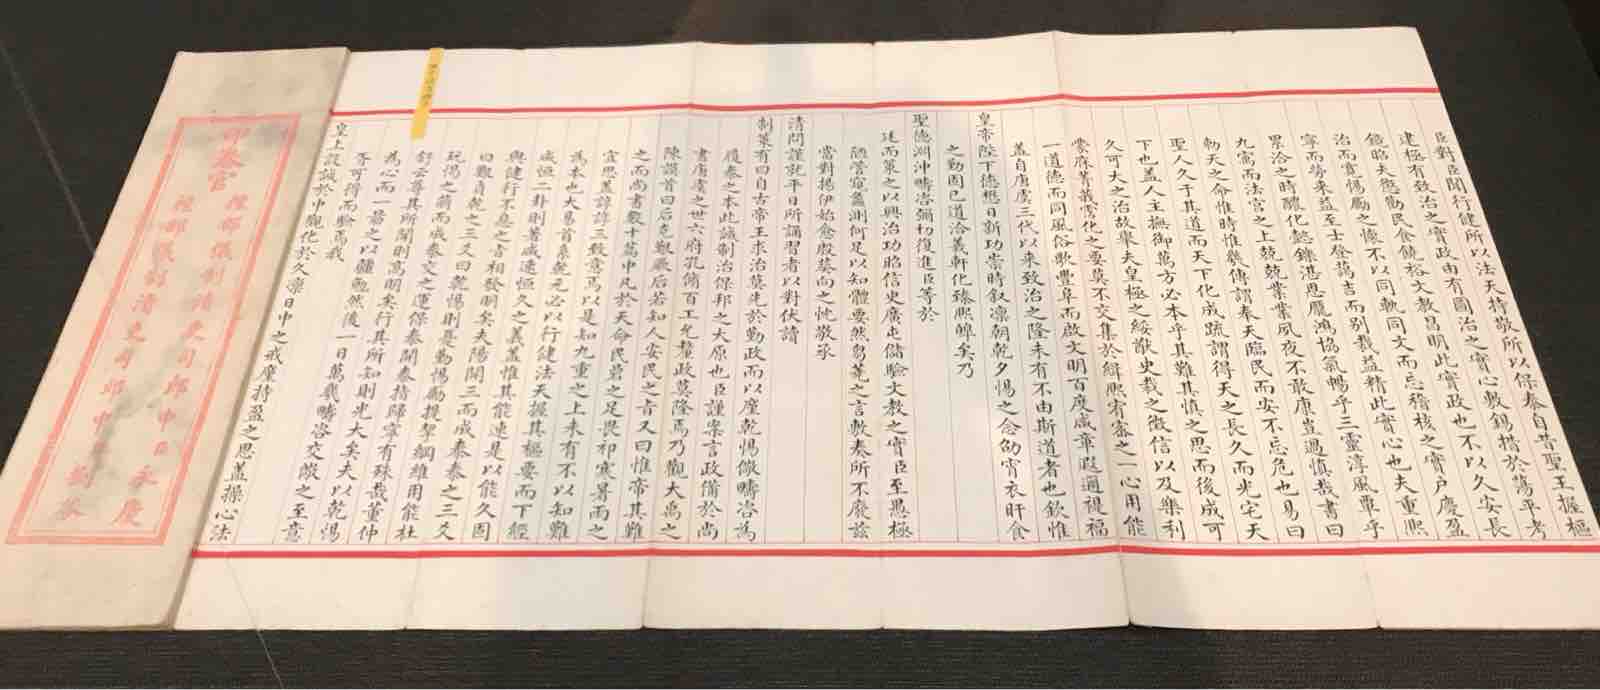 臣對臣聞行健所以法天持敬所以保泰自昔聖王握樞
建極有致治之實政由有圖治之實心敷錫措於蕩平考
鏡昭夫懲勸民食饒裕文教昌明此實政也不以久安長
治而寬惕勵之懷不以同軌同文而忘稽核之實戶慶盈
寧而勞來益至士登藹吉而別裁益精此實心也夫重熙
累洽之時醲化懿鑠湛恩龐鴻協氣暢乎三靈淳風覃乎
九寓而法宮之上兢兢業業夙夜不敢康豈過慎哉書曰
勑天之命惟時惟幾傳謂奉天臨民而安不忘危也易曰
聖人久于其道而天下化成疏謂得天之長久而光宅天
下也蓋人主撫御萬方必本乎其難其慎之思而後成可
久可大之治故舉夫皇極之綏猷史之徵信以及樂利
庥菁莪化之要莫不交集於緝熙宥密之一心用能
一道德而同風俗歌豐阜而啟文明百度咸章遐邇禔福
蓋自唐虞三代以來致治之隆未有不由斯道者也欽惟
皇帝陛下德懋日新功崇時叙凛朝乾夕惕之念劭宵衣旰食
之勤固已道洽羲軒化臻熙皞矣乃
聖德淵沖疇咨彌切復進臣等於
廷而策之以興治功昭信史廣屯儲驗文教之實臣至愚極
陋管窺蠡測何足以知體要然芻蕘之言敷奏所不廢茲
當對揚伊始愈殷葵向之忱敬承
清問謹就平日所誦習者以對伏讀
制策有曰自古帝王求治莫先於勤政而以廑乾惕儆疇咨為
履泰之本此誠制治保邦之大原也臣謹案言政備於尚
書唐虞之世六府孔脩百工允釐政莫隆焉乃觀大禹之
陳謨首曰后克艱厥后若知人安民之旨又曰惟帝其難
之而尚書數十篇中凡於天命民碞之足畏祁寒暑雨之
宜思蓋諄諄三致意焉以是知九重之上未有不以知難
為本也大易首系乾元必以行健法天握其樞要而下經
咸恒二卦則著咸速恒久之義蓋惟其能速是以能久固
與健行不息之旨相發明矣夫陽開三而成泰泰之三爻
曰艱貞乾之三爻曰乾惕則憂勤惕厲提挈綱維用能杜
玩愒之萌而成泰交之運保泰開泰持歸寧有殊哉董仲
舒云尊其所聞則高明矣行其所知則光大矣夫以乾惕
為心而一暮之以疆勉然後一日萬幾疇咨交儆之至意
胥可得而驗焉我
皇上設誠於中觀化於久凛日中之戒廑持盈之思蓋操心法
印卷官
禮部儀制清吏司郎中臣永慶
禮部儀制清吏司郎中劉